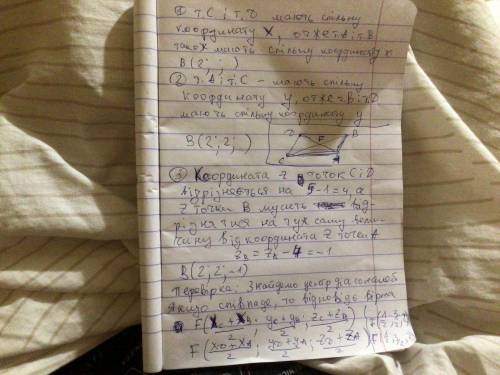 ① т.С і т.D мають спільну
координату X, отже т.А і т.В
також мають спільну координату x
B(2; ; )
② т.А і т.С - мають спільну
координату y, отже т.В і т.D
мають спільну координату y
D F B
B(2; 2; )
C A
③ Координата z точок С і D
відрізняється на 5-1=4, а
z точки В мусить від
різнятися на ту ж саму вели
чину від координати z точки А
z_B = z_A - 4 = -1
B(2; 2; -1)
Перевірка. Знайдемо центр діагоналей
Якщо співпаде, то відповідь вірна
F(x_C + x_B / 2 ; y_C + y_B / 2 ; z_C + z_B / 2)
F(x_D + x_A / 2 ; y_D + y_A / 2 ; z_D + z_A / 2)